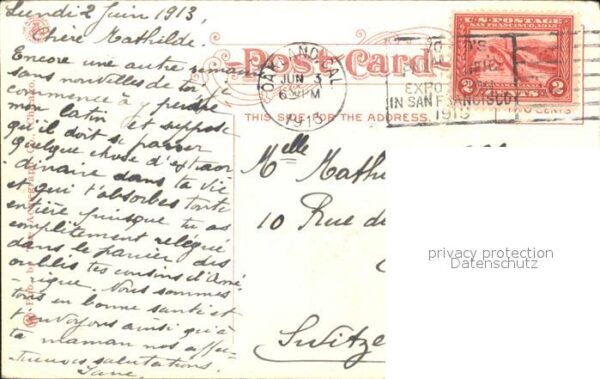 Lundi 2 Juin 1913,
Chère Mathilde.
Encore une autre semaine
sans nouvelles de toi
commence à y perdre
mon latin et suppose
qu'il doit se passer
quelque chose d'extraor
dinaire dans ta vie
et qui t'absorbes toute
entière puisque tu as
complitement relégué
dans le panier des
oublis tes cousins d'Amé
rique. Nous sommes
tous en bonne santé et
t'envoyons ainsi qu'à
ta maman nos affec-
tueuses salutations.
Jane.
Post Card
THIS SIDE FOR THE ADDRESS
OAKLAND CAL.
JUN 3
6 PM
1913
EXPO
IN SAN FRANCISCO
1915
U.S. POSTAGE
SAN FRANCISCO, 1915
2 CENTS 2
Melle Mathi
10 Rue d
Switze
privacy protection
Datenschutz